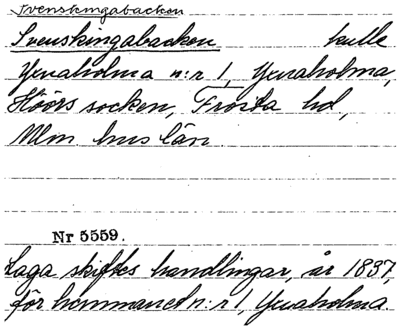 Svenskingabacken
Svenskingabacken kulle
Ynaholma n:r 1, Ynaholma,
Höörs socken, Frosta hd,
Mlm hus län
Nr 5559.
Laga skiftes handlingar, år 1837,
för hemmanet n:r 1, Ynaholma.